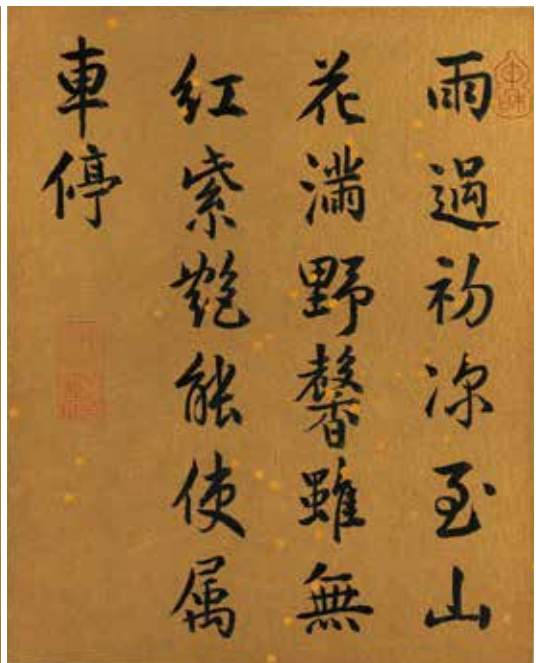 雨過初涼至山
花滿野馨雖無
紅紫艷能使属
車停